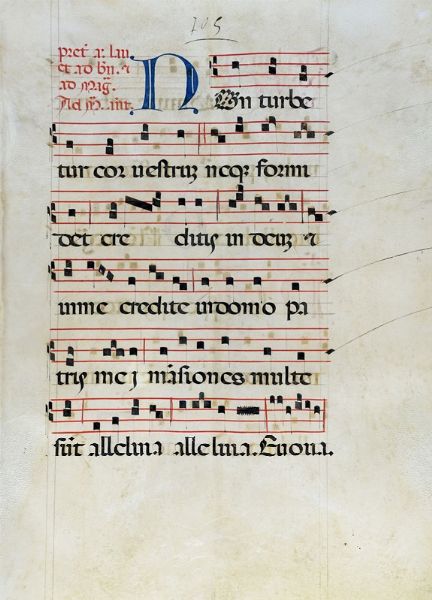 205
pret. a. lau
et ad bn. 7
ad mag.
N On turbe
tur cor uestruz neqz formi
det cre ditis in deuz 7
inme credite indomo pa
tris mei mãsiones multe
sũt alleluia alleluia. Euoua.